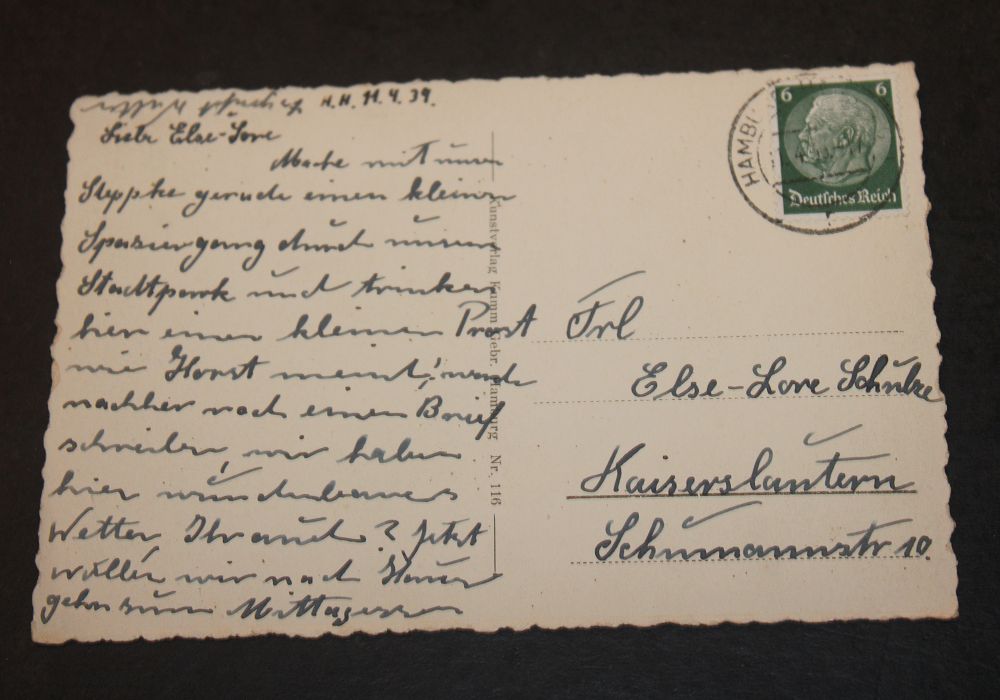 H.H. 11.4.39.
Liebe Else-Lore
Mache mit unserm
Steppke gerade einen kleinen
Spaziergang durch unsern
Stadtpark und trinken
hier einen kleinen Prost
wie Horst meint, werde
nachher noch einen Brief
schreiben, wir haben
hier wunderbares
Wetter, Ihr auch? Jetzt
wollen wir nach Hause
gehn zum Mittagessen
Kunstverlag Gebr. Hamburg Nr. 116
HAMBU
6 6
Deutsches Reich
Frl
Else-Lore Schulze
Kaiserslautern
Schumannstr 10.